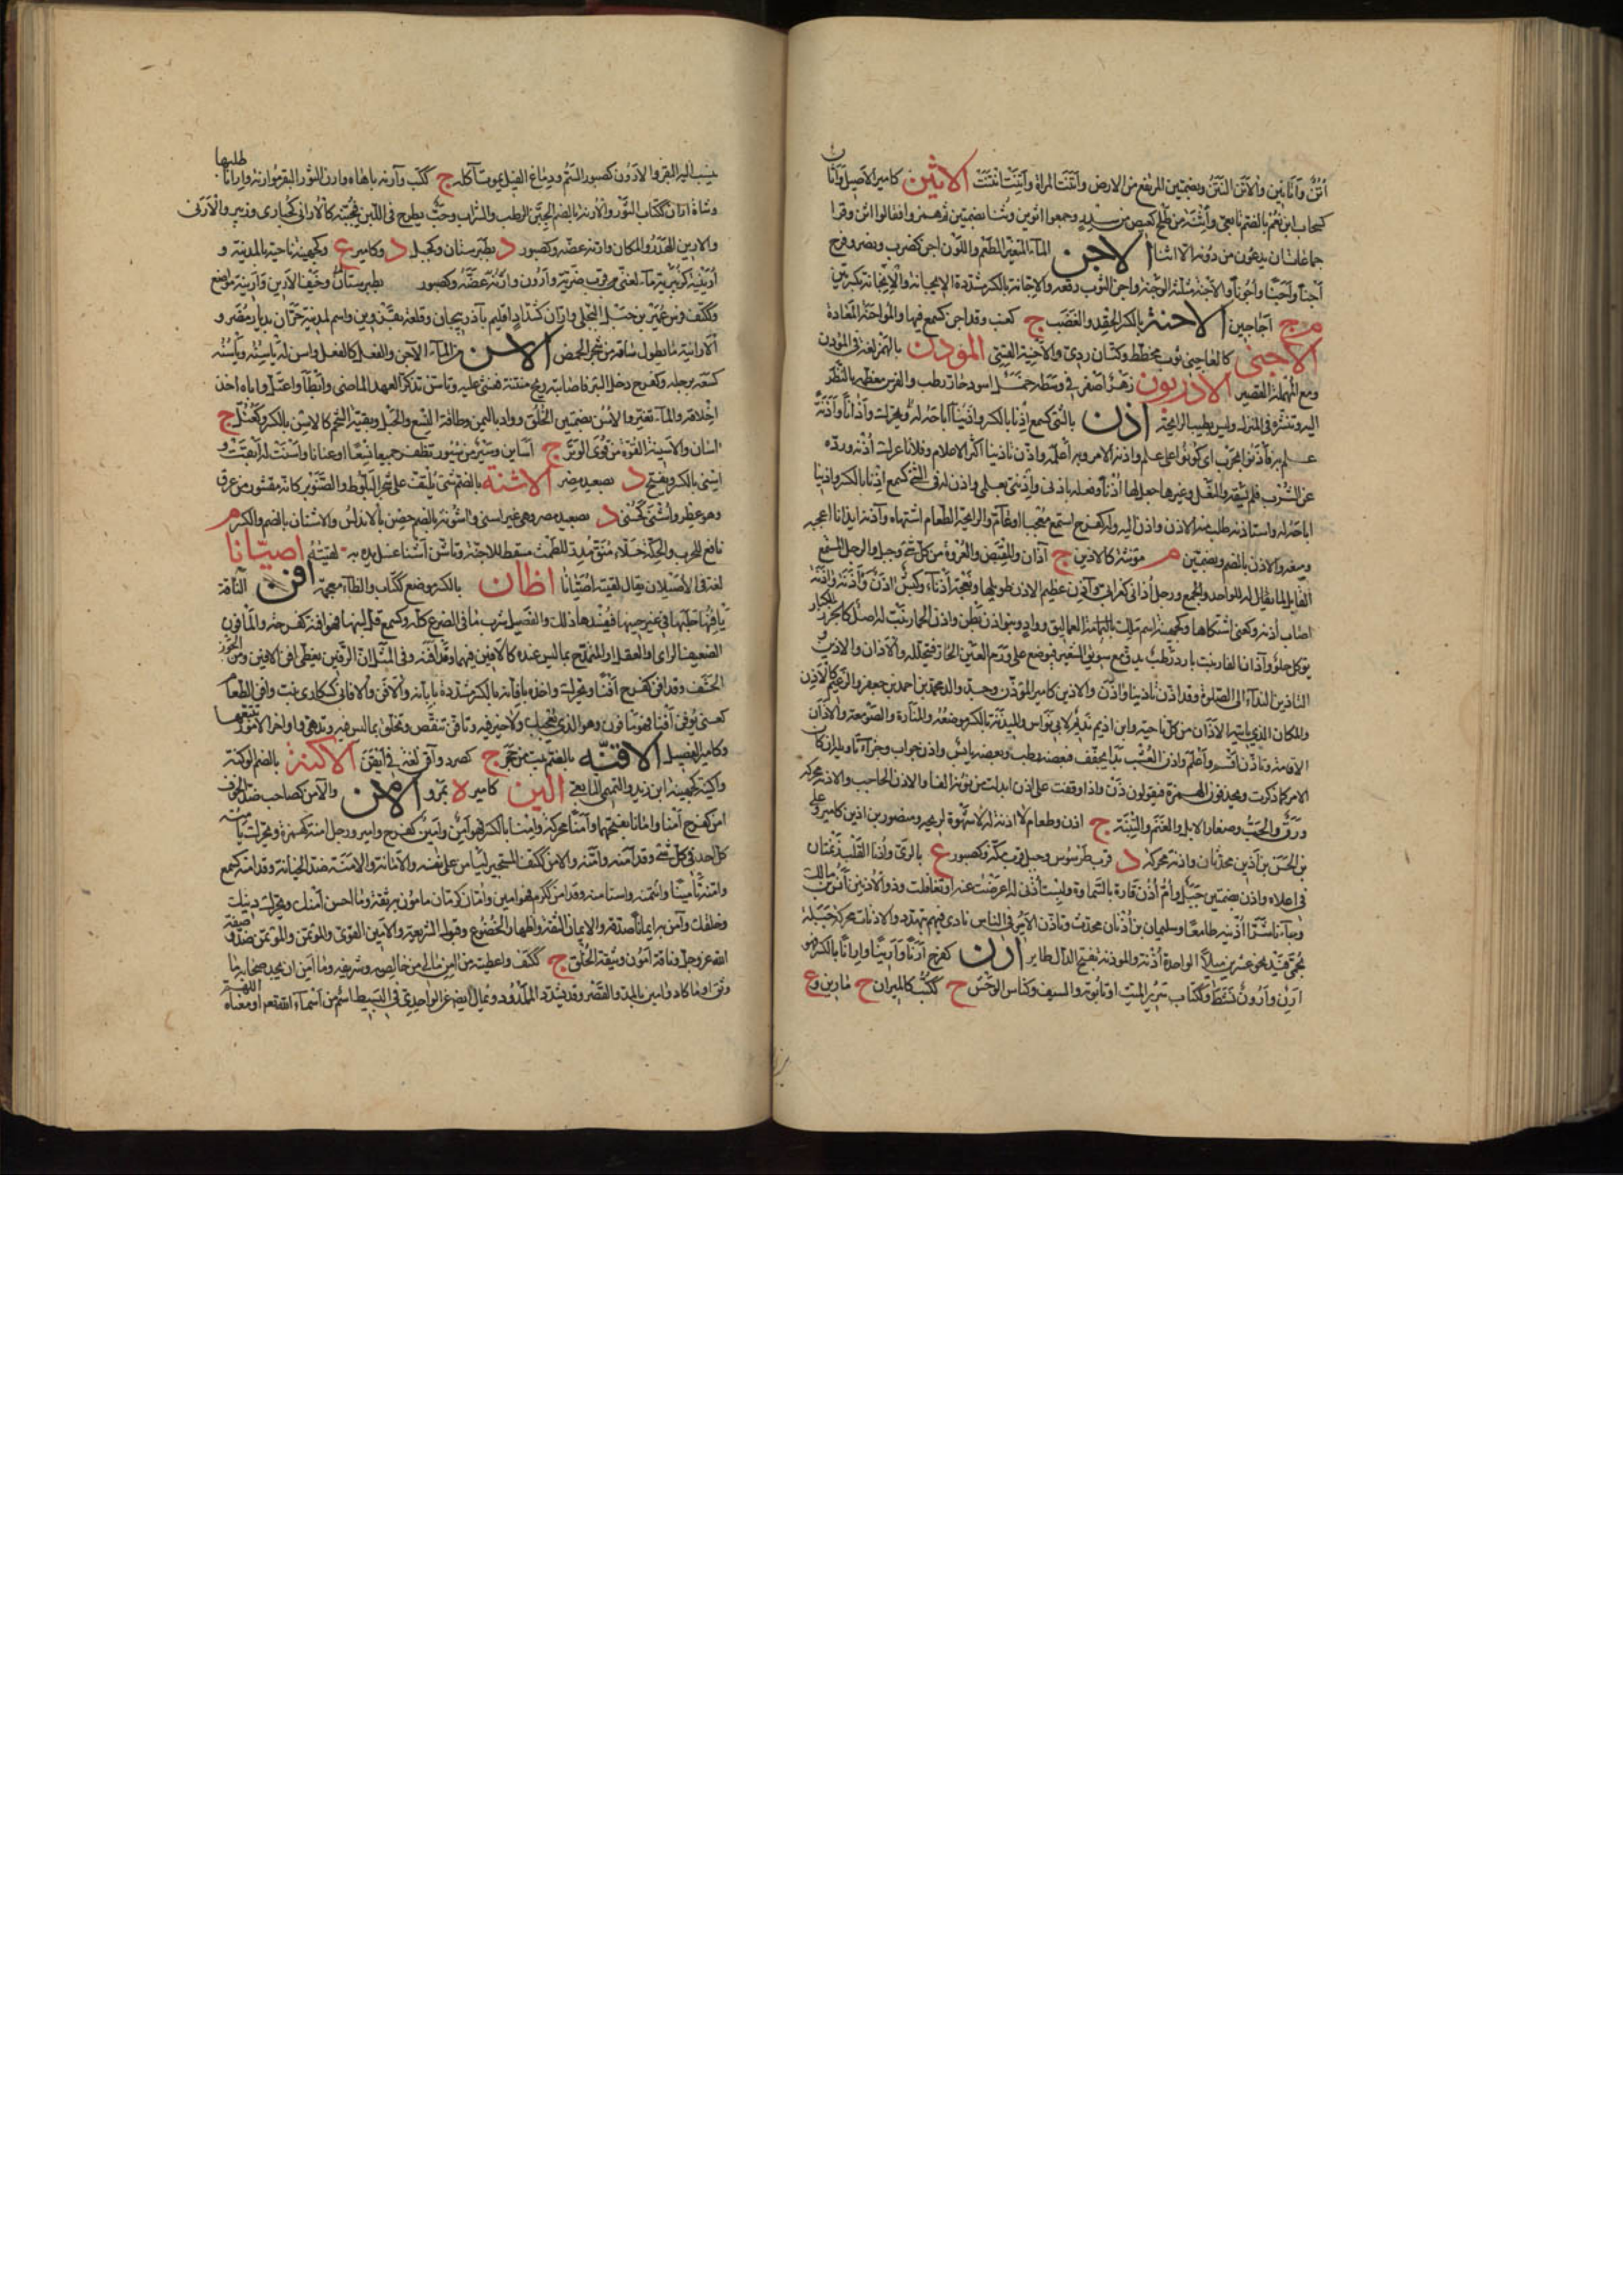 أتن وآتاتين والأتن اليتن وبضمتين المرتفع من الارض وأتنت المراة وآتنت انتنت الاثين كامير الاصيل وأثان
كسحاب ابن نعيم بالضم تابعي وأثنة من طلح كعيص من سدر وجمعوا اثوين وثنا بضمتين ثم همزوا فقالوا اثن وقرا
جماعات ان يدعون من دونه الا اثنا الاجن الماء المتغير الطعم واللون اجن كضرب ونصر وفرح
أجنا وأجنا وأجونا والاجنة مثلثة الوجنة واجن الثوب دقه والاجانة بالكسر مشددة والايجانة والانجانة بكسرتين
م ج أجاجين الاحنة بالكسر الحقد والغضب ج كعنب وقد احن كسمع فيهما والمواحنة المعاداة
الآخني كالعاجني ثوب مخطط وكتان ردئ والآخنية القسي المؤدن بالهمز لغة في المؤدن
ومع المهملة القصير الآذريون زهر اصفر في وسطه خمل اسود حار رطب والفرس تعظمه بالنظر
اليه وتنثره في المنزل وليس بطيب الرايحة اذن بالشئ كسمع اذنا بالكسر وآذانا وأذانة
علم به فأذنوا بحرب اي كونوا على علم وآذنه الامر وبه اعلمه واذن تاذينا اكثر الاعلام وفلانا عرك اذنه ورده
عن الشرب فلم يسقه والنعل وغيرها جعل لها اذنا وفعله باذني واذيني بعلمي واذن له في الشئ كسمع اذنا بالكسر واذينا
اباحه له واستاذنه طلب منه الاذن واذن اليه وله كفرح استمع معجبا او عام ولرايحة الطعام اشتهاه وآذنه ايذانا اعجبه
ومنعه والاذن بالضم وبضمتين م مؤنثة كالاذين ج آذان والمقبض والعروة من كل شئ وجبل والرجل المستمع
القابل لما يقال له للواحد والجمع ورجل اذاني كغرابي وآذن عظيم الاذن طويلها ونعجة اذناء وكبش آذن وأذنه وآذنه
اصاب اذنه وكعني اشتكاها وكجهينة اسم ملك العماليق وواد وبنو اذن بطن واذن الحمار نبت له اصل كالجزر الكبار
يوكل حلو وآذان الفار نبت بارد رطب يدق مع سويق الشعير فيوضع على ورم العين الحار فيحلله والآذان والاذين و
التاذين النداء الى الصلاة وقد اذن تاذينا وآذن والاذين كامير المؤذن وجد والد محمد بن احمد بن جعفر والزعيم كالآذن
والمكان الذي ياتيه الاذان من كل ناحية وابن اذين نديم لابي نواس والميذنة بالكسر موضعه والمنارة والصومعة والاذان
الاقامة وتاذن اقسم واعلم وآذن العشب بدا يجف فبعضه رطب وبعضه يابس واذن جواب وجزاء تاويلها ان كان
الامر كما ذكرت ويحذفون الهمزة فيقولون ذن واذا وقفت على اذن ابدلت من نونه الفا والآذن الحاجب والاذنة محركة
ورق الحب وصغار الابل والغنم والتبنة ج اذن وطعام لا اذنة له لا شهوة لريحه ومنصور بن اذين كامير وعلي
بن الحسن بن اذين محدثان واذنة محركة د قرب طرسوس وجبل قرب مكة وكصبور ع بالري واذنا القلب زنمتان
في اعلاه واذن بضمتين جبل وام اذن قارة بالسماوة ولبست اذني له اعرضت عنه او تغافلت وذو الاذنين انس بن مالك
وجاء ناشرا اذنيه طامعا وسليمان بن اذنان محدث وتاذن الامير في الناس نادى فيهم بتهدد والاذنات محركة اخيلة
بحمى فيد نحو عشرين ميلا الواحدة اذنة والموذنة بفتح الذال طاير ارن كفرح ارنا وارينا وارانا بالكسر فهو
ارن وأرون نشط وككتاب سرير الميت او تابوته والسيف وكناس الوحش ج ككتب كالميران ج مآرين وع
ينسب اليه البقر والارون كصبور السم ودماغ الفيل يموت آكله ج ككتب وآرنه باهاه وارن الثور البقر مؤارنة وارانا طلبها
وشاة اران ككتاب الثور والارنة بالضم الجبن الرطب والشراب وحب يطرح في اللبن فيجبنه كالاراني كحبارى وزبير والارنى
والارين الهدر والمكان وارنه عضه وكصبور د بطبرستان وكجبل د وكامير ع وكجهينة ناحية بالمدينة و
ارينبة كزبيرية ماء لغني قرب ضرية وارون وارنه عضه وكصبور بطبرستان وخيف الارين وارينة موضع
وككتف فرس عمير بن جبل البجلي واران كشداد اقليم باذربيجان وقلعة بقزوين واسم لمدينة حران بديار مضر و
الارانية ما يطول ساقه من شجر الحمض الاسن من الماء الآجن والفعل كالفعل واسن له ياسنه وياسنه
كسعه برجله وكفرح دخل البئر فاصابته ريح منتنة فغشي عليه وتاسن تذكر العهد الماضي وابطا واعتل واباه اخذ
اخلاقه والماء تغير والاسن بضمتين الخلق وواد باليمن وطاقة النسع والحبل وبقية الشحم كالاسن بالكسر وكعتل ج
آسان والاسينة القوة من قوى الوتر ج اساين وسير من سيور تظفر جميعا نسعا او عنانا واسنت له ابقيت و
اسنى بالكسر ويفتح د بصعيد مصر الاشنة بالضم شئ يلتف على شجر البلوط والصنوبر كانه مقشور من عرق
وهو عطر واشنى كحسنى د بصعيد مصر وهي غير اسنى واشونة بالضم حصن بالاندلس والاشنان بالضم والكسر م
نافع للجرب والحكة جلاء منق مدر للطمث مسقط للاجنة وتاشن اشنا غسل يده به لقيته اصيانا
لغة في الاصيلان يقال لقيته اصيانا اظان بالكسر موضع ككتاب والظاء معجمة افن الناقة
يافنها حلبها في غير حينها فيفسدها ذلك والفصيل شرب ما في الضرع كله وكسمع قل لبنها فهو افنة كفرحة والمافون
الضعيف الراي والعقل والمتمدح بما ليس عنده كالافين فيهما وقد افنه وفي المثل ان الرقين يغطي افن الافين ومن الجوز
الحشف وقد افن كفرح افنا ويحرك واخذه بافانه بالكسر مشددة بابانه والافن والافاني كسكارى نبت وافن الطعام
كعني يؤفن افنا فهو مافون وهو الذي يعجبك ولا خير فيه وتافن تنقص وتخلق بما ليس فيه وتدهى واواخر الامور تتبعها
وكامير الفصيل الاقنة بالضم بيت من حجر ج كصرد وآقن لغة في ايقن الاكنة بالضم الوكنة
واكينة كجهينة ابن زيد والتميمي التابعي الين كامير ة بمرو الامن والآمن كصاحب ضد الخوف
امن كفرح امنا وامانا بفتحهما وامنا محركة وامنا بالكسر فهو امن وامين كفرح وامير ورجل امنة كهمزة ويحرك يامنه
كل احد في كل شئ وقد آمنه وامنه والامن ككتف المستجير ليامن على نفسه والامانة والامنة ضد الخيانة وقد امنه كسمع
وامنه تامينا وائتمنه واستامنه وقد امن ككرم فهو امين وامان كرمان مامون به ثقة وما احسن امنك ويحرك دينك
وخلقك وآمن به ايمانا صدقه والايمان الثقة واظهار الخضوع وقبول الشريعة والامين القوي والمؤتمن والمؤتمن ضد وصفة
الله عز وجل وناقة امون وثيقة الخلق ج ككتف واعطيته من آمن مالي من خالصه وشريفه وما امن ان يجد صحابة ما
وثق او ما كاد وامين بالمد والقصر وقد يشدد الممدود ويمال ايضا عن الواحدي في البسيط اسم من اسماء الله تعالى او معناه اللهم